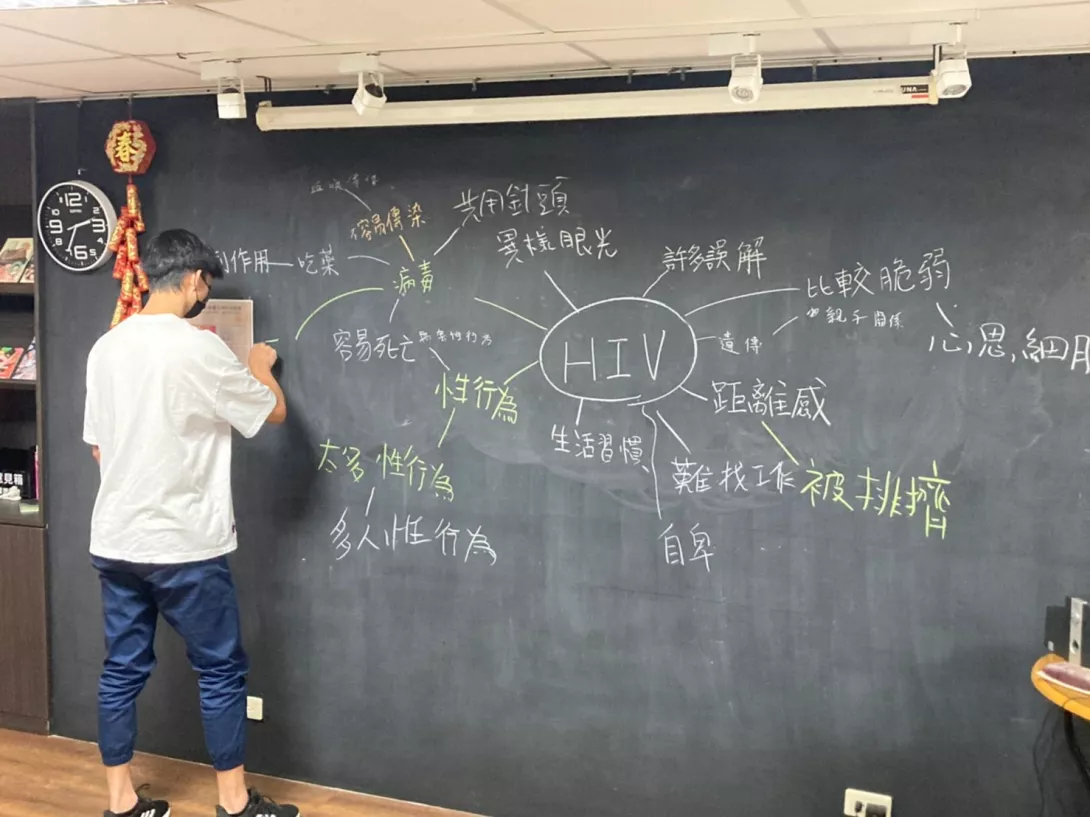 春
12
3
6
9
共用針頭
容易傳染
異樣眼光
許多誤解
副作用
吃藥
病毒
比較脆弱
親子關係
遺傳
心思細
HIV
容易死亡
性行為
距離感
生活習慣
太多性行為
難找工作
被排擠
多人性行為
自卑
見箱